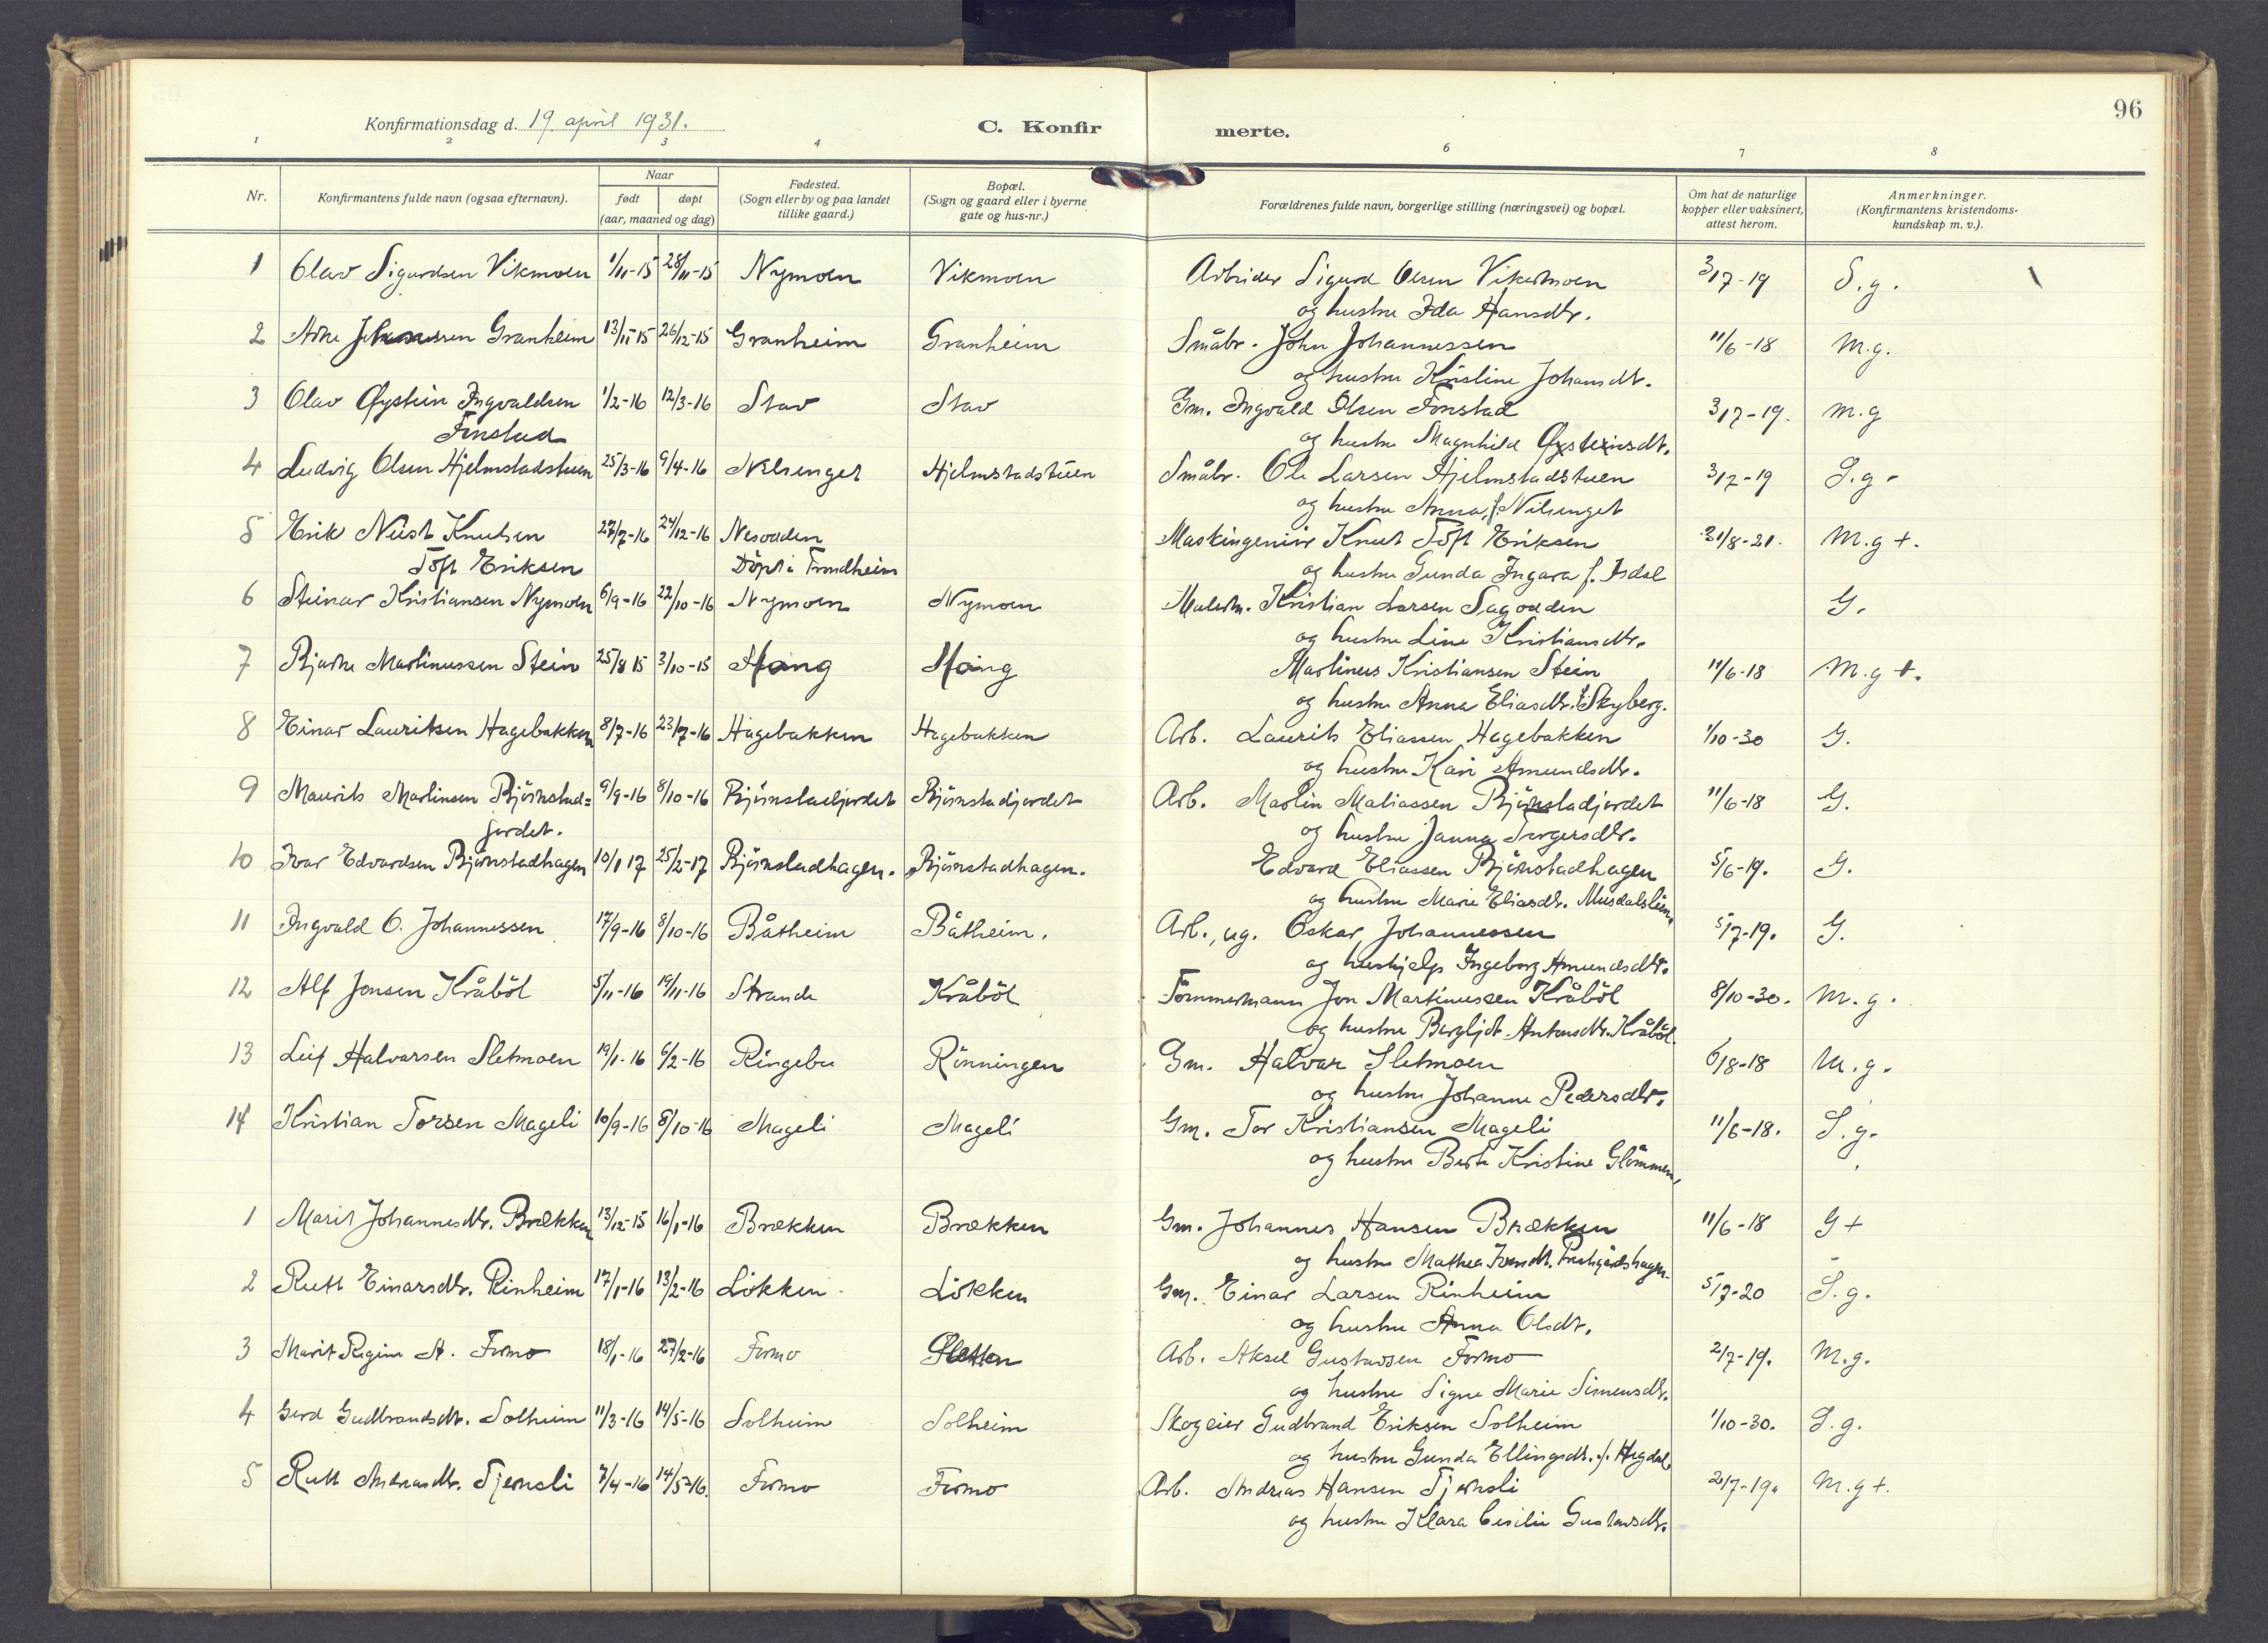 96
Konfirmationsdag d. 19 april 1931.
C. Konfir merte.
1 2 3 4 6 7 8
Nr.
Konfirmantens fulde navn (ogsaa efternavn).
Naar
født døpt
(aar, maaned og dag)
Fødested.
(Sogn eller by og paa landet
tillike gaard.)
Bopæl.
(Sogn og gaard eller i byerne
gate og hus-nr.)
Forældrenes fulde navn, borgerlige stilling (næringsvei) og bopæl.
Om hat de naturlige
kopper eller vaksinert,
attest herom.
Anmerkninger.
(Konfirmantens kristendoms-
kundskap m. v.).
1 Olav Sigurdsen Vikmoen 1/11-15 28/11-15 Nymoen Vikmoen Arbeider Sigurd Olsen Vikermoen 3/7-19 S.g.
og hustru Ida Hansdtr.
2 Arne Granheim 13/11-15 26/12-15 Granheim Granheim Småbr. John Johannessen 11/6-18 M.g.
og hustru Kristine Johansdt.
3 Olav Øystein Ingvaldsen 1/2-16 12/3-16 Stav Stav Gm. Ingvald Olsen Fonstad 3/7-19. M.g
Fonstad
og hustru Magnhild Øysteinsdt.
4 Ludvig Olsen Hjelmstadstuen 25/3-16 9/4-16 Nilsenget Hjelmstadstuen Småbr. Ole Larsen Hjelmstadstuen 3/7-19 S.g-
og hustru Anna, f. Nilsenget
5 Erik Knutsen 27/7-16 24/12-16 Nesodden Maskingeniør Knut Toft Eriksen 31/8-21. M.g+.
Toft Eriksen Döpt i Trondheim
og hustru Gunda Ingara f. Isdal
6 Steinar Kristiansen Nymoen 6/9-16 22/10-16 Nymoen Nymoen Malerm. Kristian Larsen Sagodden G.
og hustru Line Kristiansdtr.
7 Bjarne Martinussen Stein 25/8 15 3/10-15 Martinus Kristiansen Stein 11/6-18 M.g+.
og hustru Anna Eliasdtr. f. Skyberg.
8 Einar Lauritsen Hagebakken 8/7-16 23/7-16 Hagebakken Hagebakken Arb. Laurits Eliassen Hagebakken 1/10-30 G.
og hustru Kari Amundsdtr.
9 Maurits Martinsen Björnstad= 9/9-16 8/10-16 Björnstadjordet Björnstadjordet Arb. Martin Matiassen Björnstadjordet 11/6-18 G.
jordet.
og hustru Janna
10 Ivar Edvardsen Björnstadhagen 10/1 17 25/2-17 Björnstadhagen. Björnstadhagen. Edvard Eliassen Björnstadhagen 5/6-19. G.
og hustru Marie Eliasdt. Musdalslien
11 Ingvald O. Johannessen 17/9-16 8/10-16 Båtheim Båtheim. Arb., ug. Oskar Johannessen 5/7-19. G.
og hushjelp Ingeborg Amundsdtr.
12 Alf Jonsen Kråböl 5/11-16 19/11-16 Strande Kråböl Tømmermann Jon Martinussen Kråböl 8/10-30. M.g.
og hustru Bergljot Antonsdtr. Kråböl
13 Leif Halvarsen Sletmoen 19/1-16 6/2-16 Ringebu Rönningen Gm. Halvar Sletmoen 6/8-18 M.g.
og hustru Johanne Pedersdtr.
14 Kristian Torsen Mageli 10/9-16 8/10-16 Mageli Mageli Gm. Tor Kristiansen Mageli 11/6-18. S.g.
og hustru Berte Kristine Glömmen,
1 Marit Johannesdtr. Brækken 13/12-15 16/1-16 Brækken Brækken Gm. Johannes Hansen Brækken 11/6-18 G+
og hustru Mathea
2 Rutt Einarsdtr. Rinheim 17/1-16 13/2-16 Lökken Lökken Gm. Einar Larsen Rinheim 5/7-20 S.g.
og hustru Anna Olsdt.
3 Marit Regine A. Formo 18/1-16 27/2-16 Formo Arb. Aksel Gustavsen Formo 2/7-19. M.g.
og hustru Signe Marie Simensdt.
4 Gerd Gudbrandsdt. Solheim 11/3-16 14/5-16 Solheim Solheim Skogeier Gudbrand Eriksen Solheim 1/10-30. S.g.
og hustru Gunda Ellingsdt. f. Hegdal,
5 Rutt Andreasdtr. Tjernsli 7/4-16 14/5-16. Formo Formo Arb. Andreas Hansen Tjernsli 2/7-19. M.g+.
og hustru Klara Cecilie Gustavsdtr.